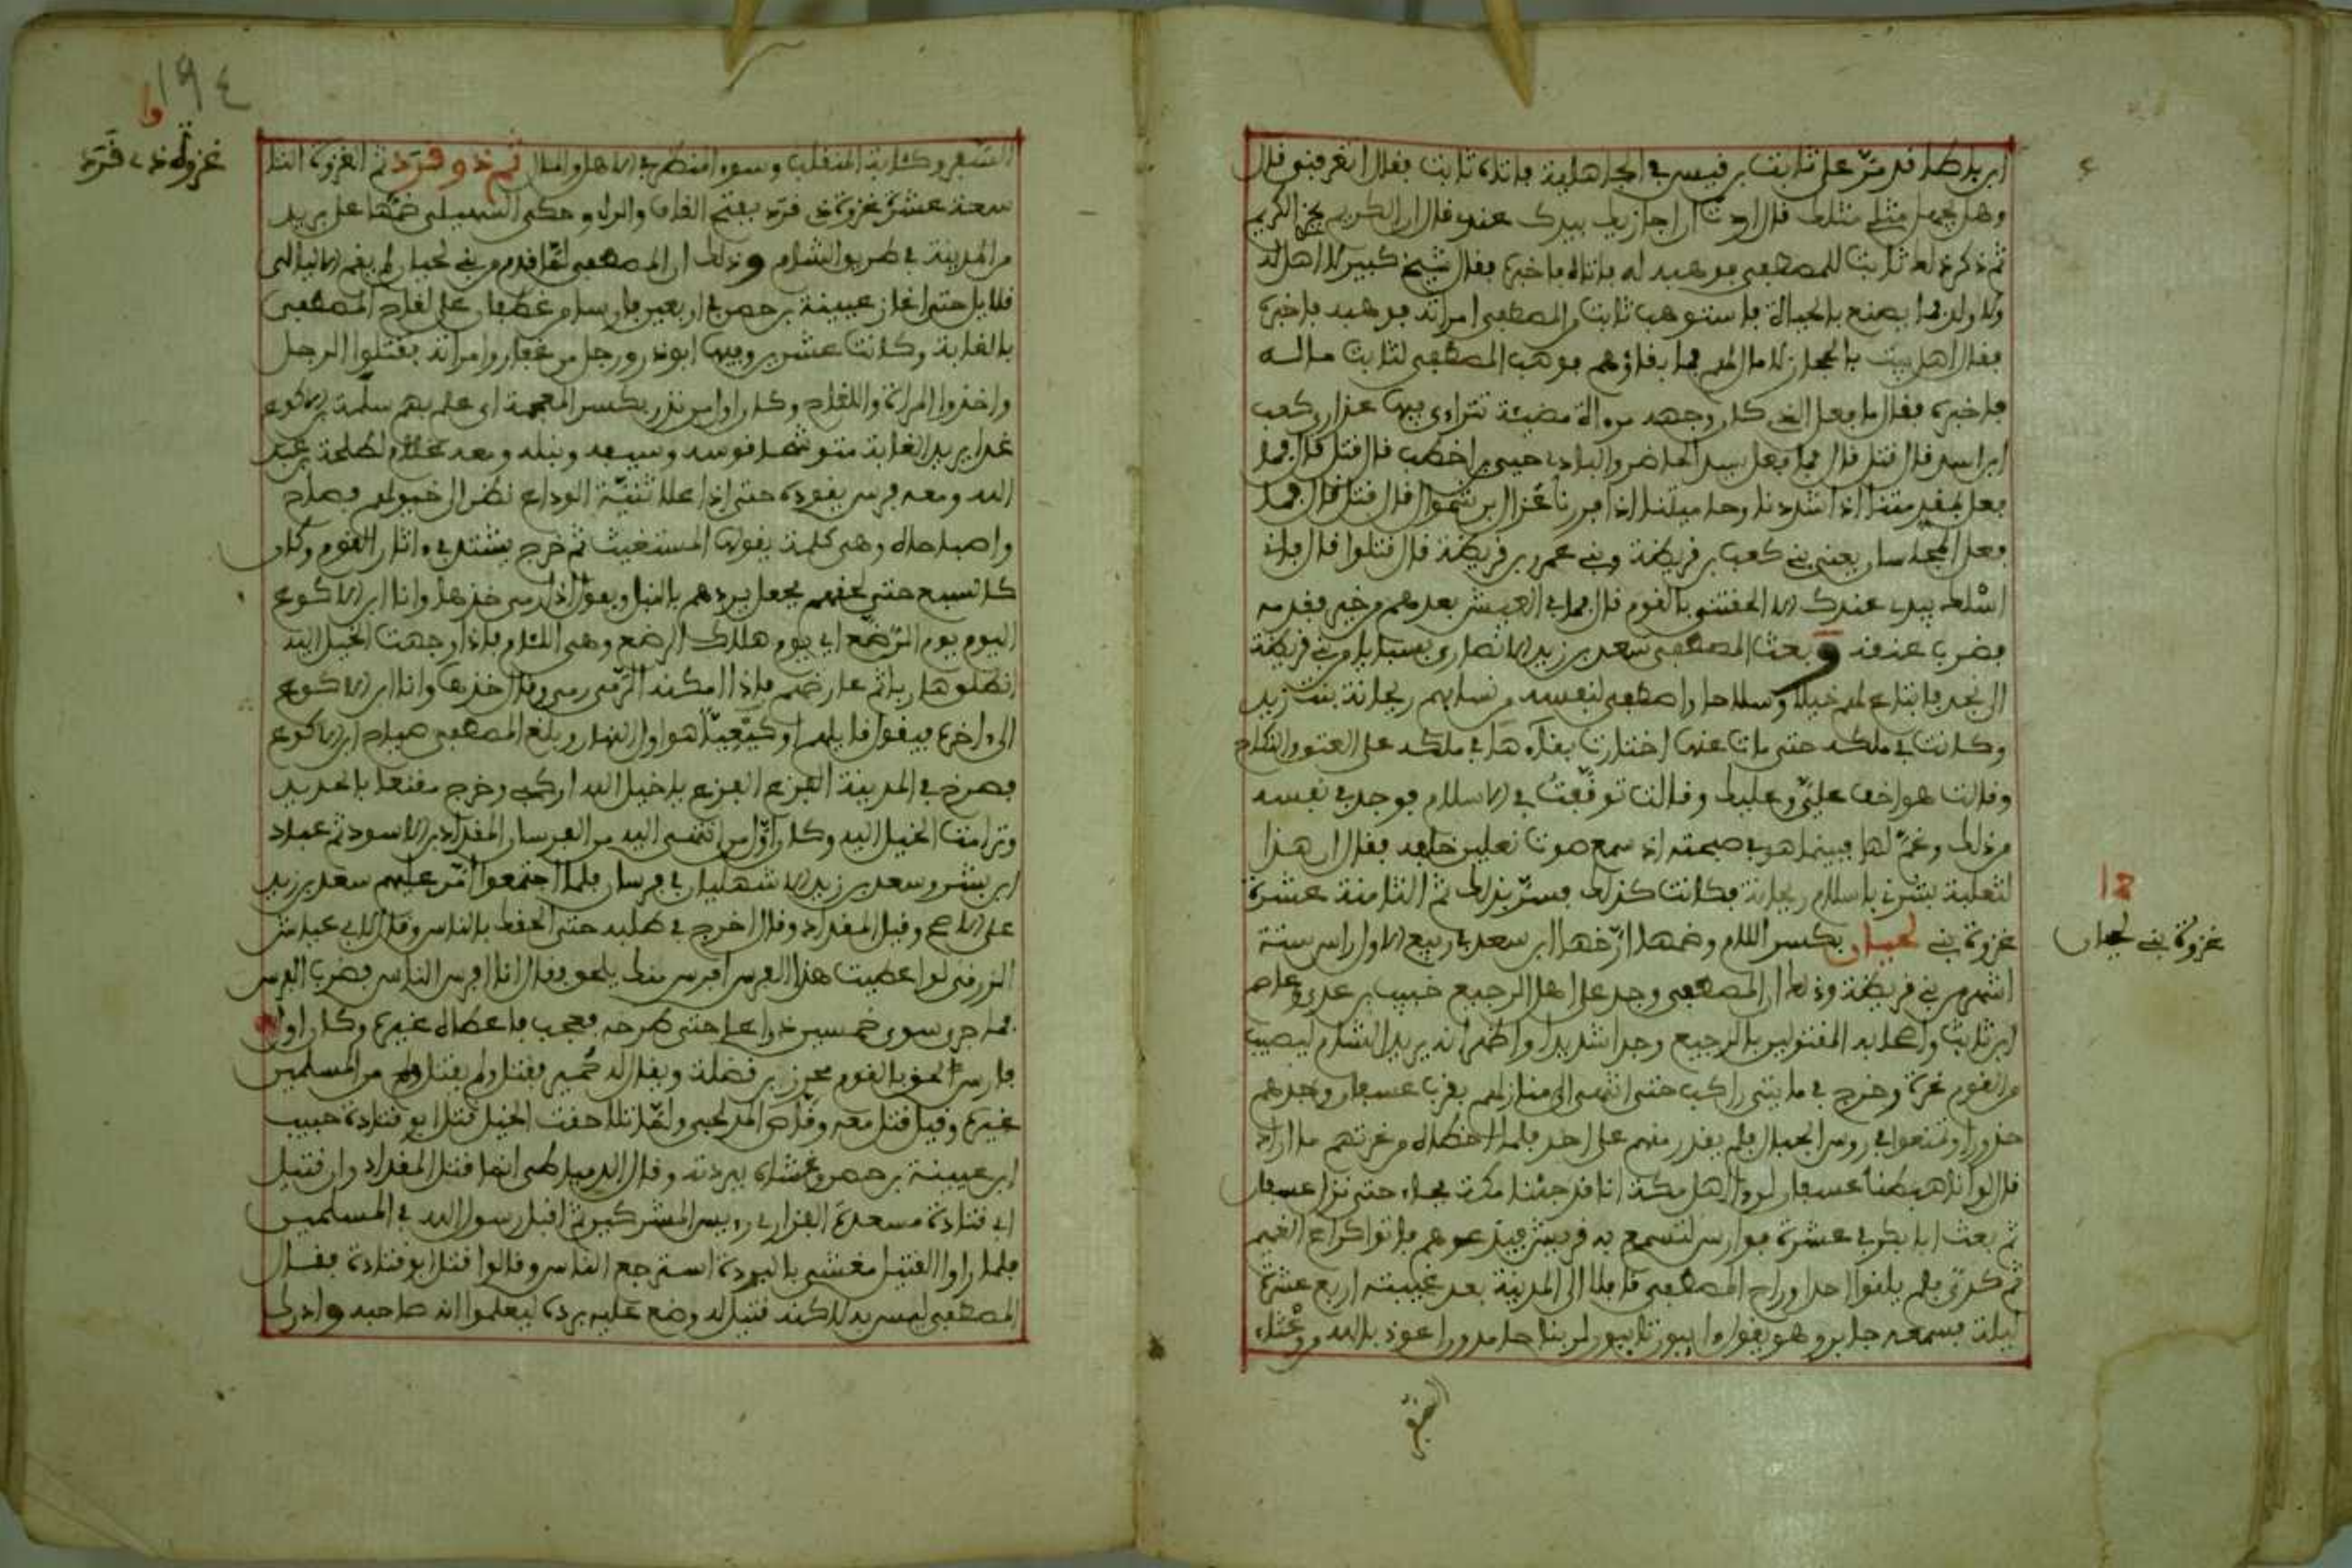 ابن باطا قد مَنّ على ثابت بن قيس في الجاهلية فأتاه ثابت فقال أتعرفني قال
وهل يجهل مثلي مثلك قال أردت أن أجازيك بيدك عندي قال إن الكريم يجزي الكريم
ثم ذكر ذلك ثابت للمصطفى فوهبه له فأتاه فأخبره فقال شيخ كبير لا أهل له
ولا ولد فما يصنع بالحياة فاستوهب ثابت من المصطفى امرأته فوهبه فأخبره
فقال أهل بيت بالحجاز لا مال لهم فما بقاؤهم فوهب المصطفى لثابت ماله
فأخبره فقال ما فعل الذي كان وجهه مرآة مضيئة تتراءى فيها عذارى كعب
ابن أسد قال قتل قال فما فعل سيد الحاضر والبادي حيي بن أخطب قال قتل قال فما
فعل مقدمتنا إذا شددنا وحاميتنا إذا فررنا عزال بن شموال قال قتل قال فما
فعل المجلسان يعني بني كعب بن قريظة وبني عمرو بن قريظة قال قتلوا قال فإني
أسألك بيدي عندك إلا ألحقتني بالقوم فما في العيش بعدهم من خير فقدمه
فضرب عنقه وبعث المصطفى سعد بن زيد الأنصاري بسبايا من بني قريظة
إلى نجد فابتاع لهم خيلا وسلاحا واصطفى لنفسه من نسايهم ريحانة بنت زيد
وكانت في ملكه حتى مات عنها اختارت بقاءها في ملكه على العتق والنكاح
وقالت هو أخف عليّ وعليك وقالت توقّفت في الإسلام فوجد في نفسه
من ذلك وغمّ لها فبينما هو في صحبه إذ سمع صوت نعلين خلفه فقال إن هذا
لثعلبة يبشرني بإسلام ريحانة فكانت كذلك فسرّ بذلك ثم الثامنة عشرة
غزوة بني لحيان بكسر اللام وضمها أرّخها ابن سعد في ربيع الأول رأس ستة
أشهر من بني قريظة وذلك أن المصطفى وجد على أهل الرجيع خبيب بن عدي وعاصم
ابن ثابت وأصحابه المقتولين بالرجيع وجدا شديدا وأظهر أنه يريد الشام ليصيب
من القوم غرة وخرج في مايتي راكب حتى انتهى إلى منازلهم بقرب عسفان وجدهم
حذروا وتمنعوا في روس الجبال فلم يقدر منهم على أحد فلما أخطأه من غرتهم ما أراد
قالوا لو أنا هبطنا عسفان لرأى أهل مكة أنا قد جئنا مكة فجاء حتى نزل عسفان
ثم بعث أبا بكر في عشرة فوارس لتسمع به قريش فيذعرهم فأتوا كراع الغميم
ثم كروا فلم يلقوا أحدا وراح المصطفى قافلا إلى المدينة بعد غيبته أربع عشرة
ليلة فسمعه جابر وهو يقول آيبون تايبون لربنا حامدون أعوذ بالله من وعثاء
السفر
غزوة بني لحيان
18
السفر وكآبة المنقلب وسوء المنظر في الأهل والمال ثم ذو قرد ثم الغزوة التا
سعة عشرة غزوة ذي قرد بفتح القاف والراء وحكى السهيلي ضمّها على بريد
من المدينة في طريق الشام وذلك أن المصطفى لمّا قدم من بني لحيان لم يقم إلا ليالي
قلايل حتى أغار عيينة بن حصن في أربعين فارسا من غطفان على لقاح المصطفى
بالغابة وكانت عشرين وفيها أبو ذر ورجل من غفار وامرأته فقتلوا الرجل
وأخذوا المرأة واللقاح وكان أول من نذر بكسر المعجمة أي علم بهم سلمة بن الأكوع
غدا يريد الغابة متوشحا قوسه وسيفه ونبله ومعه غلام لطلحة بن عبيد
الله ومعه فرس يقوده حتى إذا علا ثنيّة الوداع نظر إلى خيولهم فصاح
واصباحاه وهي كلمة يقولها المستغيث ثم خرج يشتد في آثار القوم وكان
كالسبع حتى لحقهم فجعل يردهم بالنبل ويقول إذا رمى خذها وأنا ابن الأكوع
اليوم يوم الرّضّع أي يوم هلاك الرضع وهي اللئام فإذا وجهت الخيل إليه
انطلق هاربا ثم عارضهم فإذا أمكنه الرّمي رمى وقال خذها وأنا ابن الأكوع
إلى آخره فيقول قايلهم أو كيّعنا هو أول النهار وبلغ المصطفى صياح ابن الأكوع
فصرخ في المدينة الفزع الفزع يا خيل الله اركبي وخرج مقنعا بالحديد
وترامت الخيل إليه وكان أوّل من انتهى إليه من الفرسان المقداد بن الأسود ثم عباد
ابن بشر وسعد بن زيد الأشهليان في فرسان فلما اجتمعوا أمّر عليهم سعد بن زيد
على الأصح وقيل المقداد وقال اخرج في طلبه حتى ألحقك بالناس وقال لأبي عياش
الزرقي لو أعطيت هذا الفرس أفرس منك يلحق فقال أنا أفرس الناس فضرب الفرس
فما جرى سوى خمسين ذراعا حتى طرحه فعجب فأعطاه غيره وكان أول
فارس لحق بالقوم محرز بن فضلة ويقال له قمير فقتل ولم يقتل من المسلمين
غيره وقيل قتل معه وقاص المدلجي ولمّا تلاحقت الخيل قتل أبو قتادة حبيب
ابن عيينة بن حصن وغشاه ببردته وقال الدمياطي إنما قتله المقداد وإن قتيل
أبي قتادة مسعدة الفزاري رييس المشركين ثم أقبل رسول الله في المسلمين
فلما رأوا القتيل مغشى بالبردة استرجع الناس وقالوا قتل أبو قتادة فقال
المصطفى ليس به لكنه قتيل له وضع عليه برده ليعلموا أنه صاحبه وأدرك
غزوة ذي قرد
١٩٤